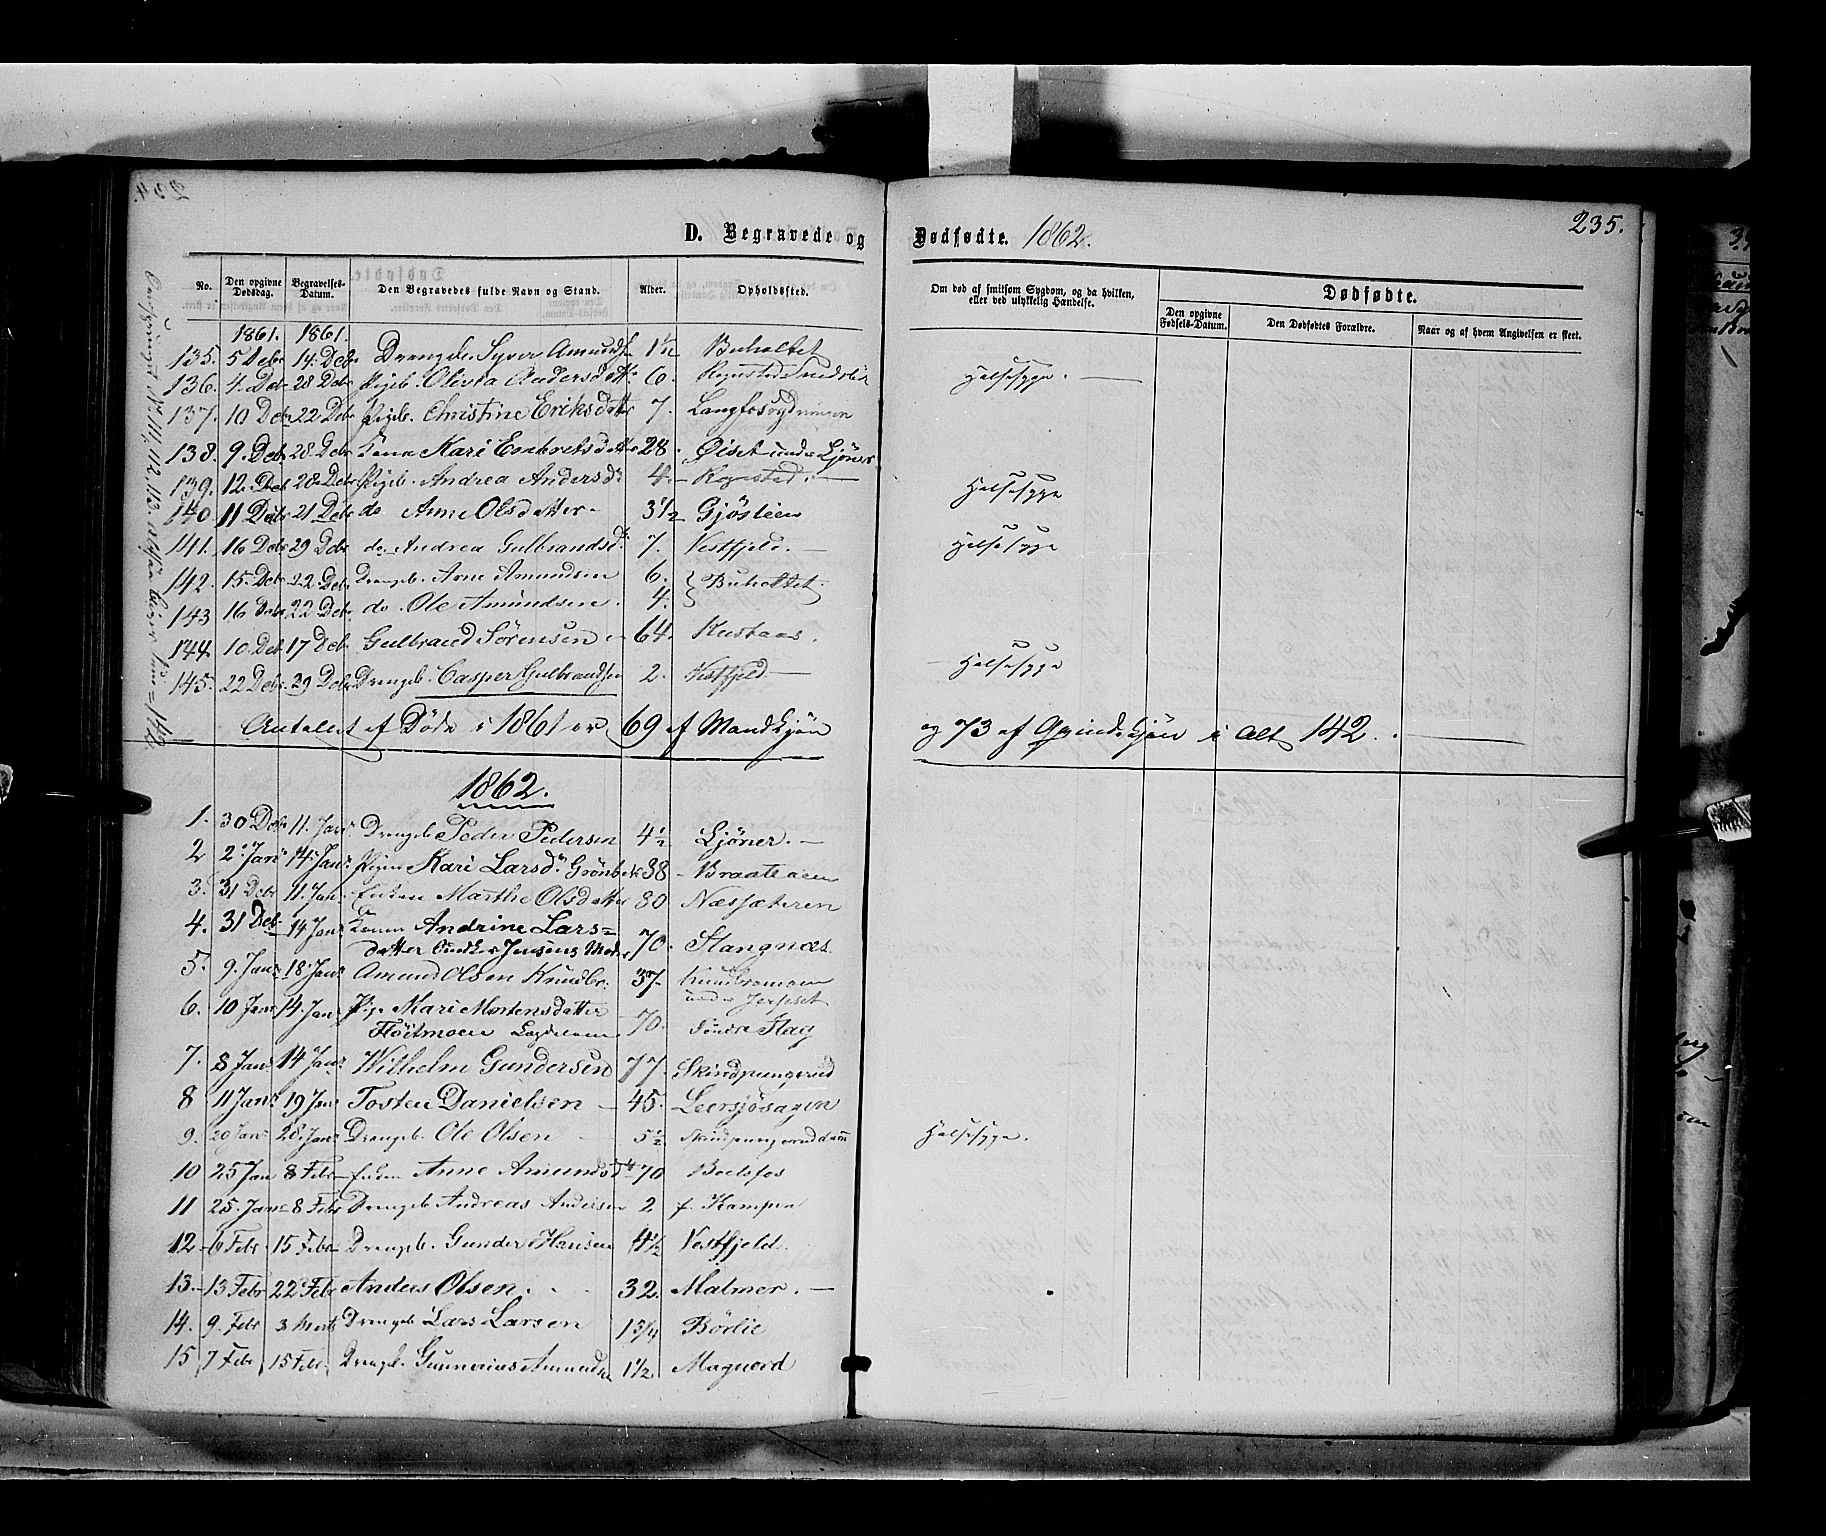 235.
D. Begravede og Dødfødte. 1862.
No. Den opgivne Dødsdag. Begravelses-Datum. Den Begravedes fulde Navn og Stand. Alder. Opholdssted. Om død af smitsom Sygdom, og da hvilken, eller ved ulykkelig Hændelse. Dødfødte.
Den opgivne Fødsels-Datum. Den Dødfødtes Forældre. Naar og af hvem Angivelsen er skeet.
1861. 1861.
135. 5 Debr 14. Debr Drengeb. Syver Amunds. 1½ Buholtet
136. 4. Debr 28 Debr Pigeb. Olivia Andersdatter 6. Halsesyge.
137. 10 Debr 22 Debr Pigeb. Christine Eriksdatter 7. Langfosrydningen
138. 9. Debr 28 Debr Kone Kari Embretsdatter 28. Øiset under Ljøner
139. 12. Debr 28 Debr Pigeb. Andrea Andersd. 4. Rogsted. Halsesyge
140. 11 Debr 21 Debr do Anne Olsdatter 3½ Gjøsteen
141. 16 Debr 29 Debr do Andrea Gulbrandsdr 7. Vestfjeld. Halsesyge
142. 15. Debr 22 Debr Drengeb. Arne Amundsen 6. Buholtet.
143 16 Debr 22 Debr do. Ole Amundsen. 4.
144. 10. Debr 17 Debr Gulbrand Sørensen 64. Kustaas.
145. 22 Debr 29 Debr Drengeb. Casper Gulbrandsen 2. Vestfjeld Halsesyge
Antallet af Døde i 1861 er 69 af Mandkjøn og 73 af Qvindekjøn i Alt 142.
1862.
1. 30 Debr 11. Janr Drengeb. Peder Pedersen 4½ Ljøner.
2 2. Janr 14. Janr Pigen Kari Larsdr Grønbek 38 Braateneen
3. 31 Debr 11. Jan. Enken Marthe Olsdatter 80 Næssæteren
4. 31 Debr 14 Janr Konen Andrine Lars=
datter Moder 70. Stangnæs.
5. 9. Janr 18. Janr Amund Olsen Knudbr. 37 Knudbromoen
under Jerpset
6. 10 Janr 14. Janr Pige Mari Mortensdatter
Fløitmoen Lægdslem 70. Søndre Flag
7. 8 Janr 14 Janr Wilhelm Gundersen 77. Skindpungrud
8 11 Janr 19 Janr Tosten Danielsen 45. Leersjøsagen
9. 20 Janr 28. Janr Drengeb. Ole Olsen 5½ Skindpungruddam Halsesyge.
10 25 Jan 8 Febr Enken Anne Amundsd. 70 Boelsfos
11 25. Janr 8 Febr Drengeb Andreas Andersen 2 f. Kampen
12. 6 Febr 15 Febr Drengeb. Gunder Hansen 4½ Vestfjeld.
13. 13 Febr 22 Febr Anders Olsen. 32. Malmer.
14. 9. Febr 3 Marts Drengeb Lars Larsen 1 3/4 Børlie
15 7 Febr 15 Febr. Drengeb. Gunnerius Amunds. 1½ Magnord